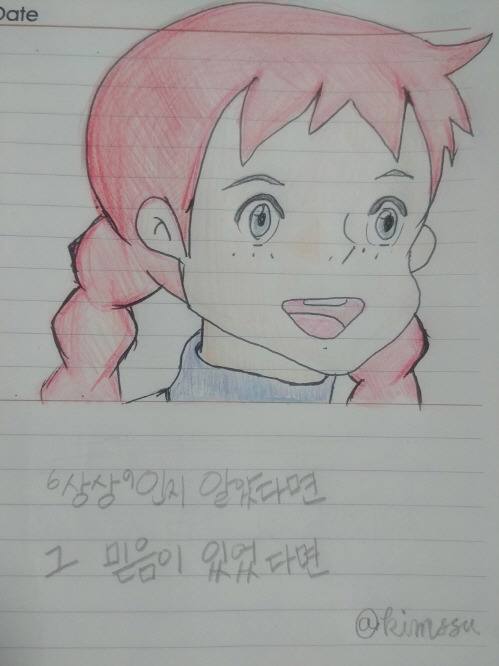 Date
‘상상’인지 알았다면
그 믿음이 있었다면
@kimssu